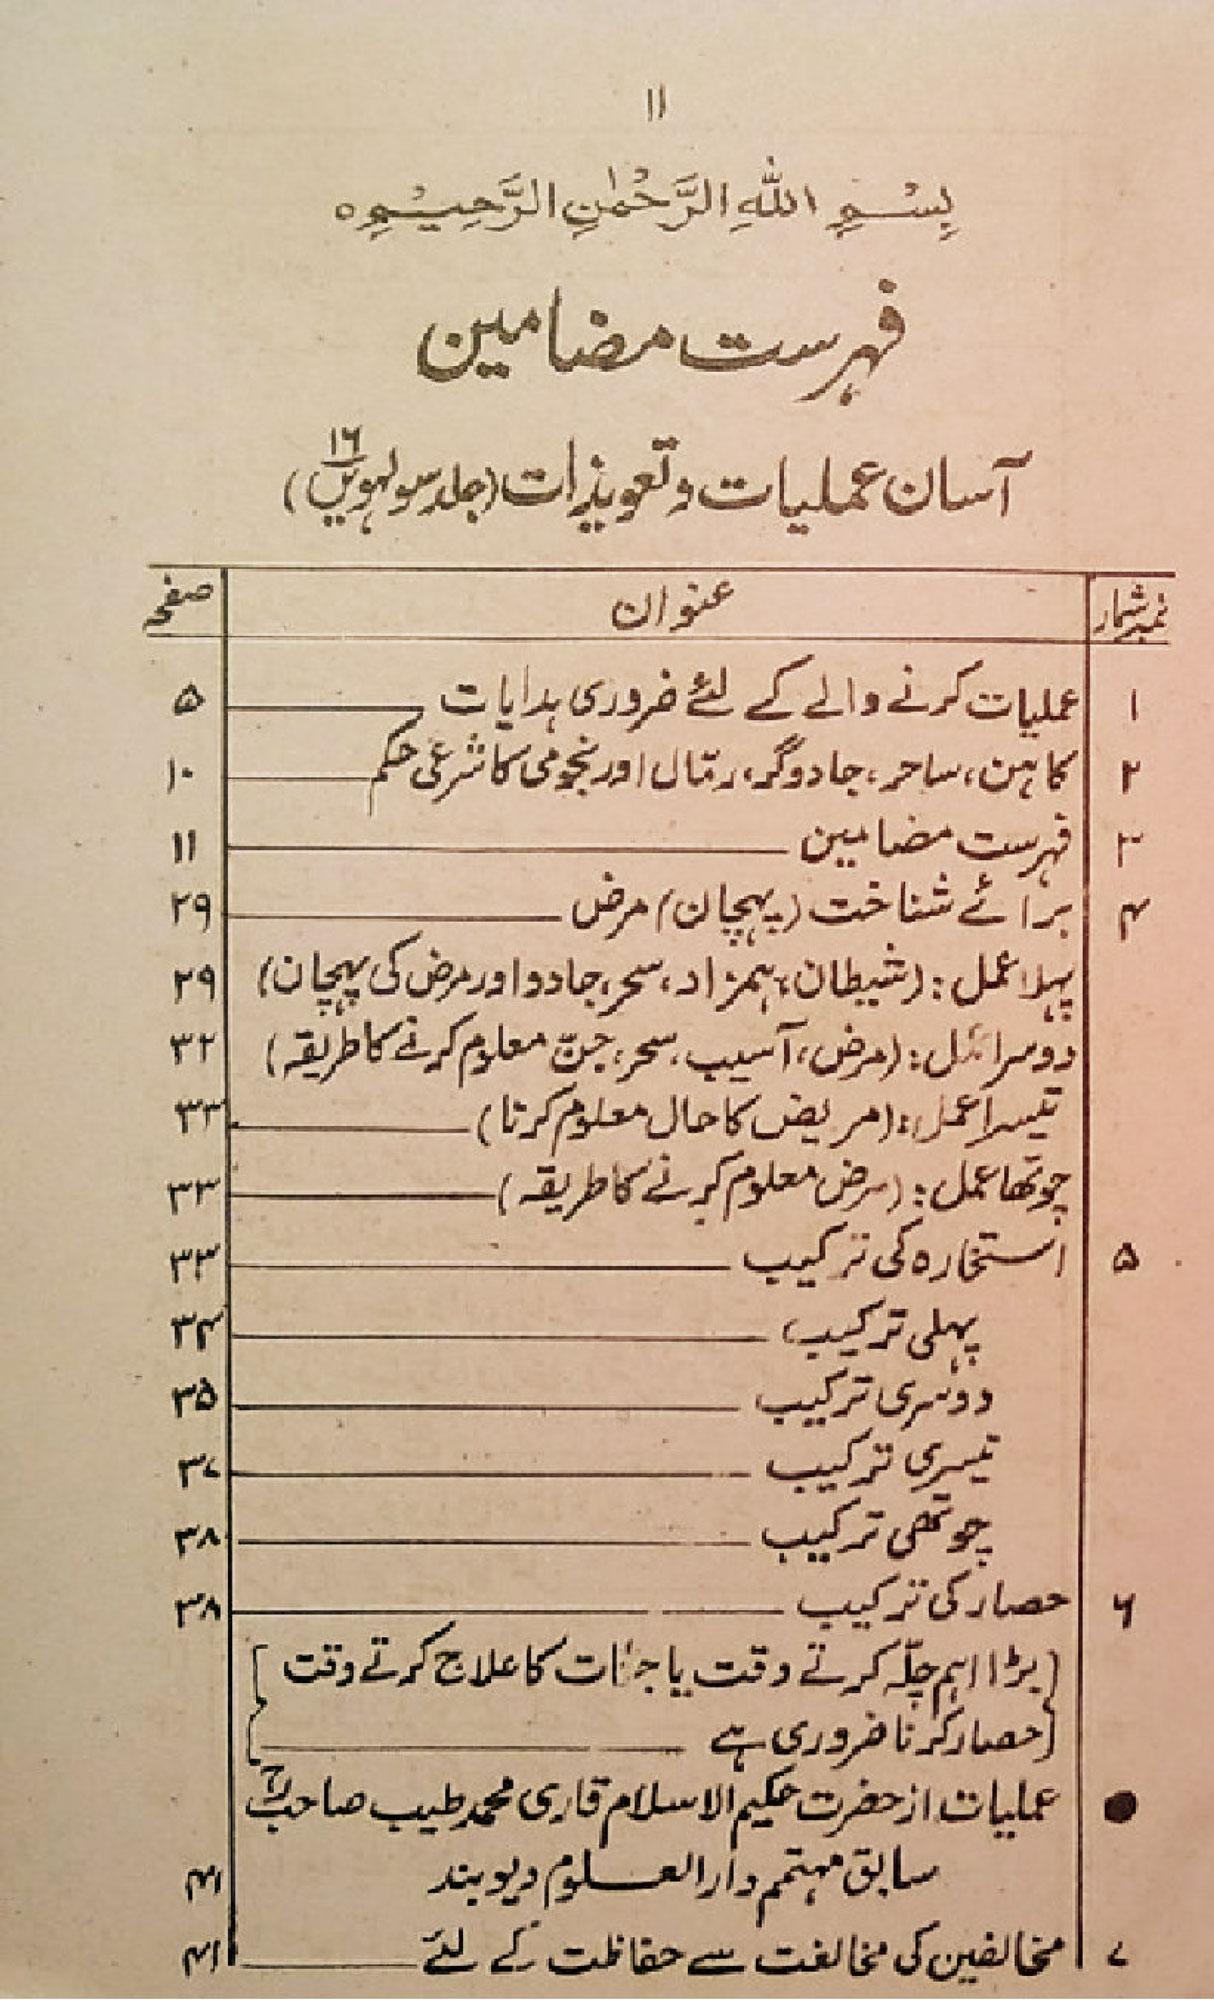 ۱۱
بِسْمِ اللهِ الرَّحْمٰنِ الرَّحِيْمِ ۝
فہرست مضامین
آسان عملیات و تعویذات (جلد سولہویں ۱۶)
نمبر شمار عنوان صفحہ
۱ عملیات کرنے والے کے لئے ضروری ہدایات ۵
۲ کاہن، ساحر، جادوگر، رمّال اور نجومی کا شرعی حکم ۱۰
۳ فہرست مضامین ۱۱
۴ برائے شناخت (پہچان) مرض ۲۹
پہلا عمل: (شیطان، ہمزاد، سحر، جادو اور مرض کی پہچان) ۲۹
دوسرا عمل: (مرض، آسیب، سحر، جنّ معلوم کرنے کا طریقہ) ۳۲
تیسرا عمل: (مریض کا حال معلوم کرنا) ۳۳
چوتھا عمل: (مرض معلوم کرنے کا طریقہ) ۳۳
۵ استخارہ کی ترکیب ۳۳
پہلی ترکیب ۳۴
دوسری ترکیب ۳۵
تیسری ترکیب ۳۷
چوتھی ترکیب ۳۸
۶ حصار کی ترکیب ۳۸
[بڑا اہم چلّہ کرتے وقت یا جنّات کا علاج کرتے وقت]
[حصار کرنا ضروری ہے]
● عملیات از حضرت حکیم الاسلام قاری محمد طیب صاحبؒ
سابق مہتمم دارالعلوم دیوبند ۴۱
۷ مخالفین کی مخالفت سے حفاظت کے لئے ۴۱